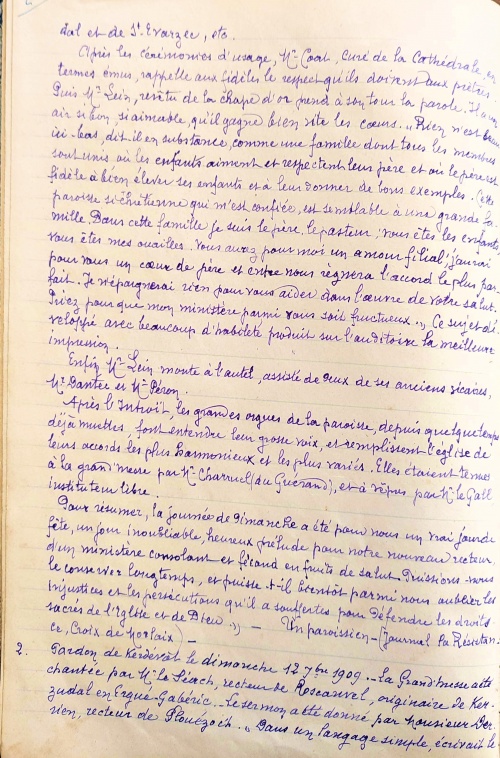 dal et de St Evarzec, etc.
Après les cérémonies d'usage, Mr Coat, curé de la Cathédrale, en
termes émus, rappelle aux fidèles le respect qu'ils doivent aux prêtres
Puis Mr Lein, revêtu de la chape d'or prend à son tour la parole. Il a un
air si bon, si aimable, qu'il gagne bien vite les cœurs. "Rien n'est beau
ici-bas, dit-il en substance, comme une famille dont tous les membres
sont unis où les enfants aiment et respectent leur père et où le père est
fidèle à bien élever ses enfants et à leur donner de bons exemples. Cette
paroisse si chrétienne qui m'est confiée, est semblable à une grande fa-
mille. Dans cette famille, je suis le père, le pasteur; vous êtes les enfants,
vous êtes mes ouailles. Vous aurez pour moi un amour filial; j'aurai
pour vous un cœur de père et entre nous règnera l'accord le plus par-
fait. Je n'épargnerai rien pour vous aider dans l'œuvre de votre salut.
Priez pour que mon ministère parmi vous soit fructueux." Ce sujet dé-
veloppé avec beaucoup d'habileté produit sur l'auditoire la meilleure
impression.
Enfin Mr Lein monte à l'autel, assisté de deux de ses anciens vicaires,
Mr Dantec et Mr Péron.
Après l'Introït, les grandes orgues de la paroisse, depuis quelque temps
déjà muettes, font entendre leur grosse voix, et remplissent l'église de
leurs accords les plus harmonieux et les plus variés. Elles étaient tenues
à la grand'messe par Mr Charruel (du Guérand), et à vêpres par Mr le Gall
instituteur libre.
Pour résumer, la journée de dimanche a été pour nous un vrai jour de
fête, un jour inoubliable, heureux prélude pour notre nouveau recteur,
d'un ministère consolant et fécond en fruits de salut. Puissions-nous
le conserver longtemps, et puisse-t-il bientôt parmi nous oublier les
injustices et les persécutions qu'il a souffertes pour défendre les droits
sacrés de l'Eglise et de Dieu." — Un paroissien — (Journal La Résistan-
ce, Croix de Morlaix) —
2. Pardon de Kerdévot le dimanche 12 7bre 1909. — La Grand'messe a été
chantée par Mr le Séach, recteur de Roscanvel, originaire de Ker-
zudal en Ergué-Gabéric. — Le sermon a été donné par Monsieur Der-
rien, recteur de Plouézoch. "Dans un langage simple, écrivait le